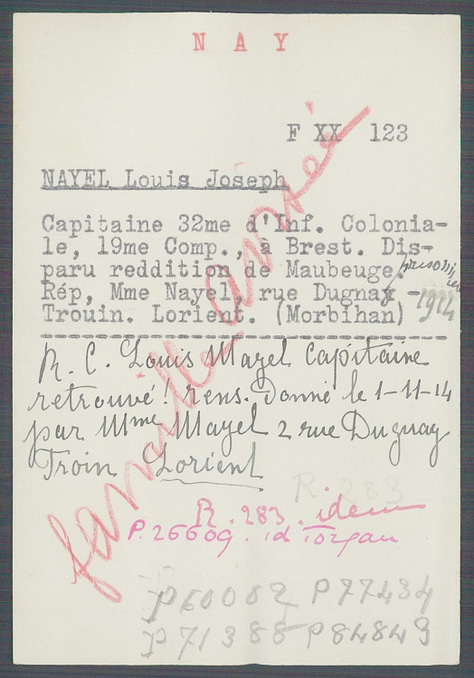 N A Y
F XX 123
NAYEL Louis Joseph
Capitaine 32me d'Inf. Colonia-
le, 19me Comp., à Brest. Dis-
paru reddition de Maubeuge, prisonnier
Rép, Mme Nayel, rue Dugnay - 1914
Trouin. Lorient. (Morbihan)
R. C. Louis Mayel Capitaine
retrouvé! rens. donné le 1-11-14
par Mme Mayel 2 rue Duguay
Troin Lorient
R. 283
R. 283. idem
P. 26609. id Torgau
famille avisée
P60082 P77434
P71388 P84849